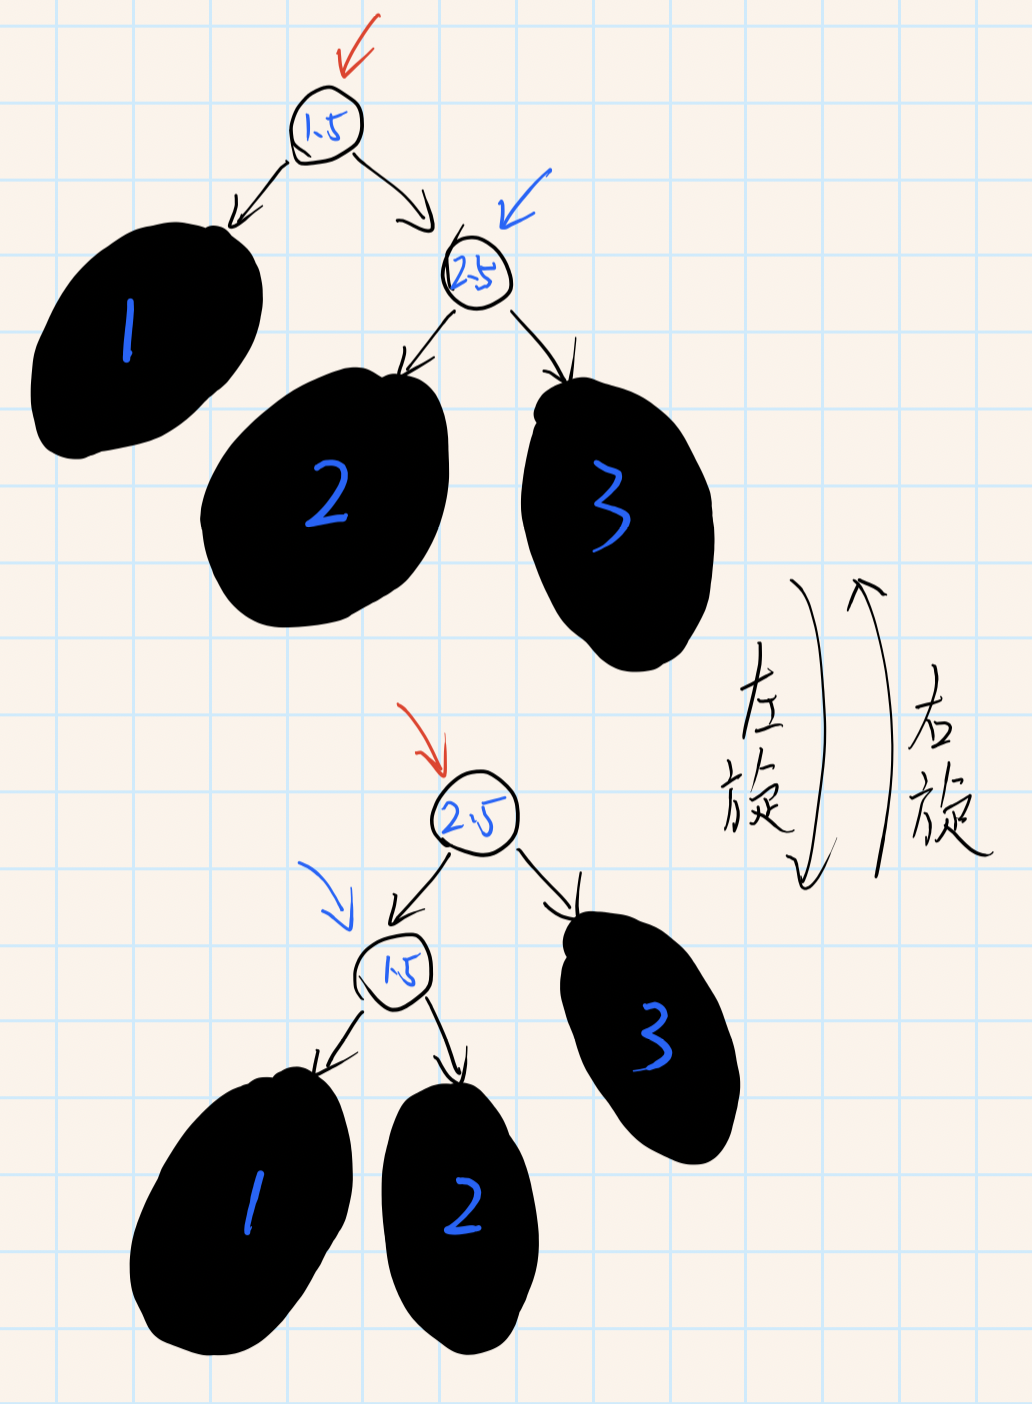 1.5
2.5
1
2
3
左旋
右旋
2.5
1.5
3
1
2